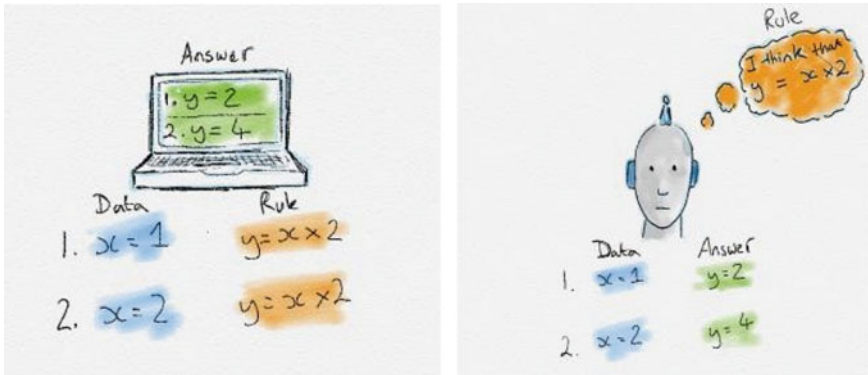 Answer
1. y=2
2. y=4
Data Rule
1. x=1 y=x×2
2. x=2 y=x×2
Rule
I think that
y = x×2
Data Answer
1. x=1 y=2
2. x=2 y=4